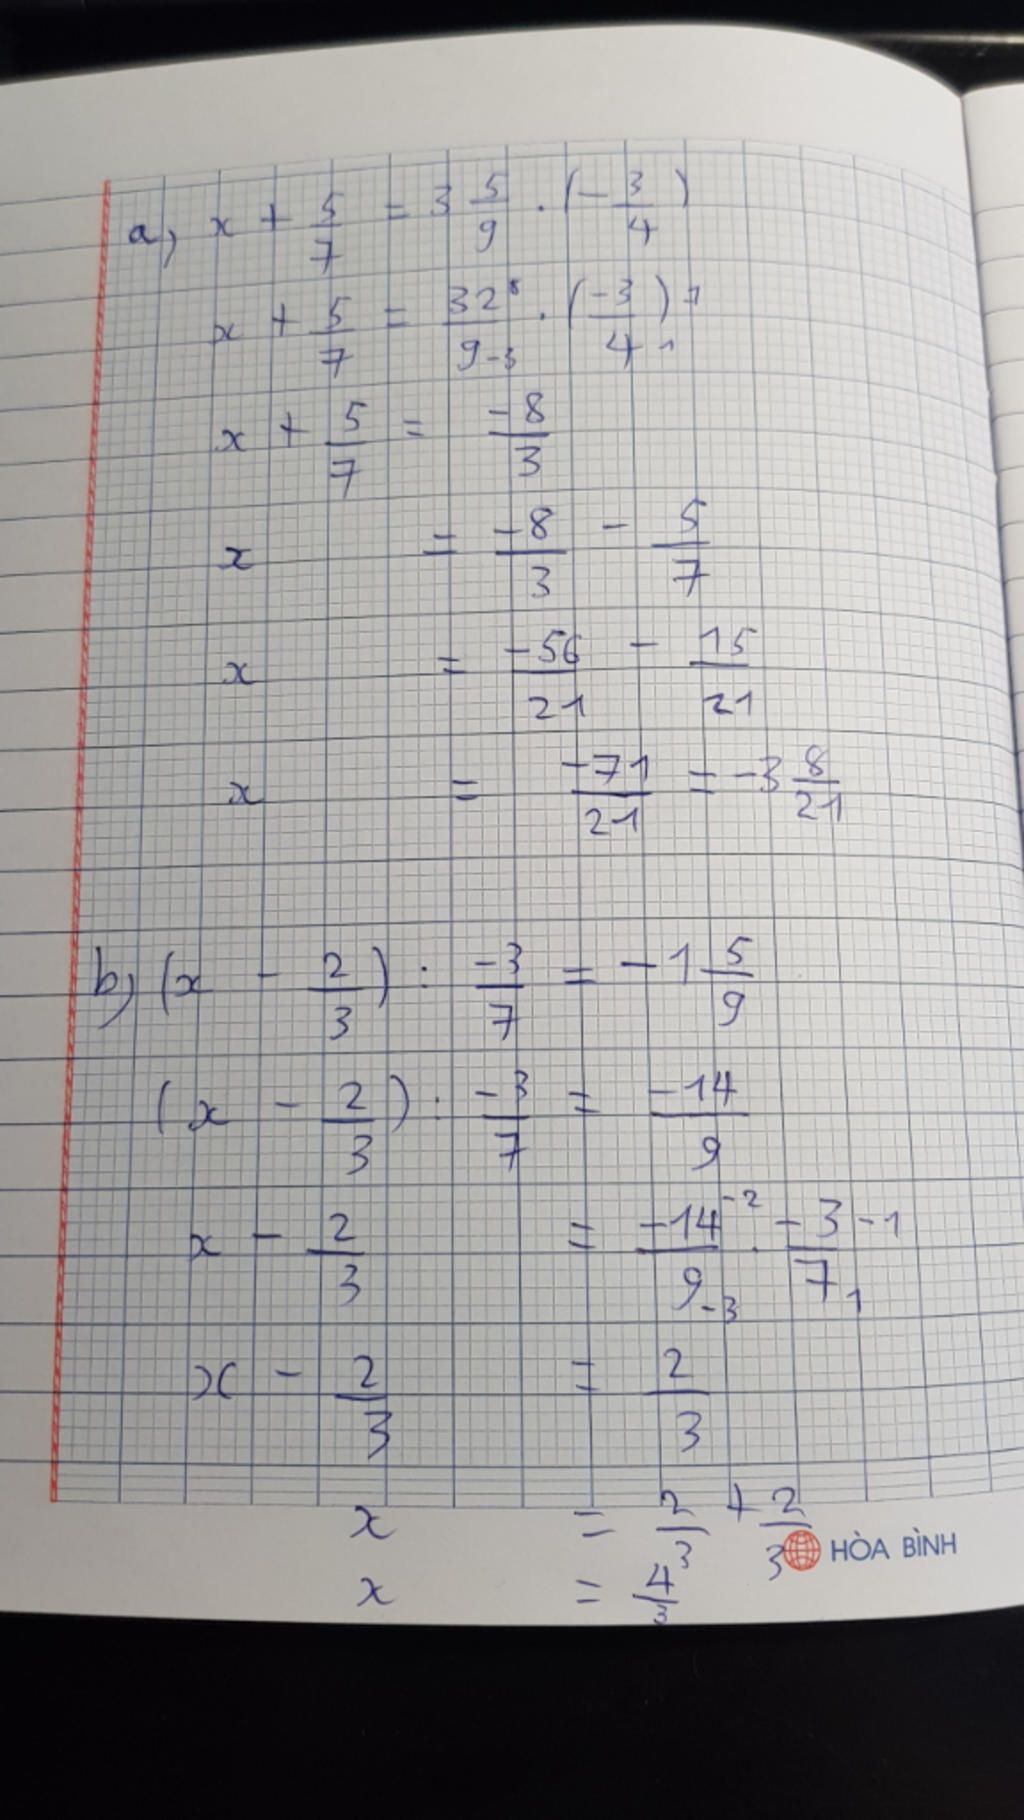 a, x + 5/7 = 3 5/9 . (- 3/4)
x + 5/7 = 32⁸/9₋₃ . (-3/4₁) 1
x + 5/7 = -8/3
x = -8/3 - 5/7
x = -56/21 - 15/21
x = -71/21 = -3 8/21
b, (x - 2/3) : -3/7 = -1 5/9
(x - 2/3) : -3/7 = -14/9
x - 2/3 = -14⁻²/9₋₃ . -3/7₁ -1
x - 2/3 = 2/3
x = 2/3 + 2/3
HÒA BÌNH
x = 4/3